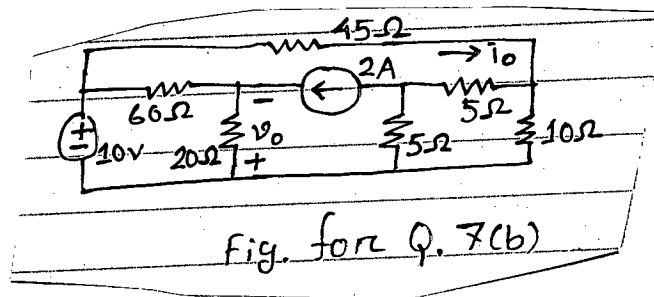 45Ω
→ i₀
2A
60Ω
−
5Ω
+
−
10V
20Ω
v₀
+
5Ω
10Ω
Fig. for Q. 7(b)